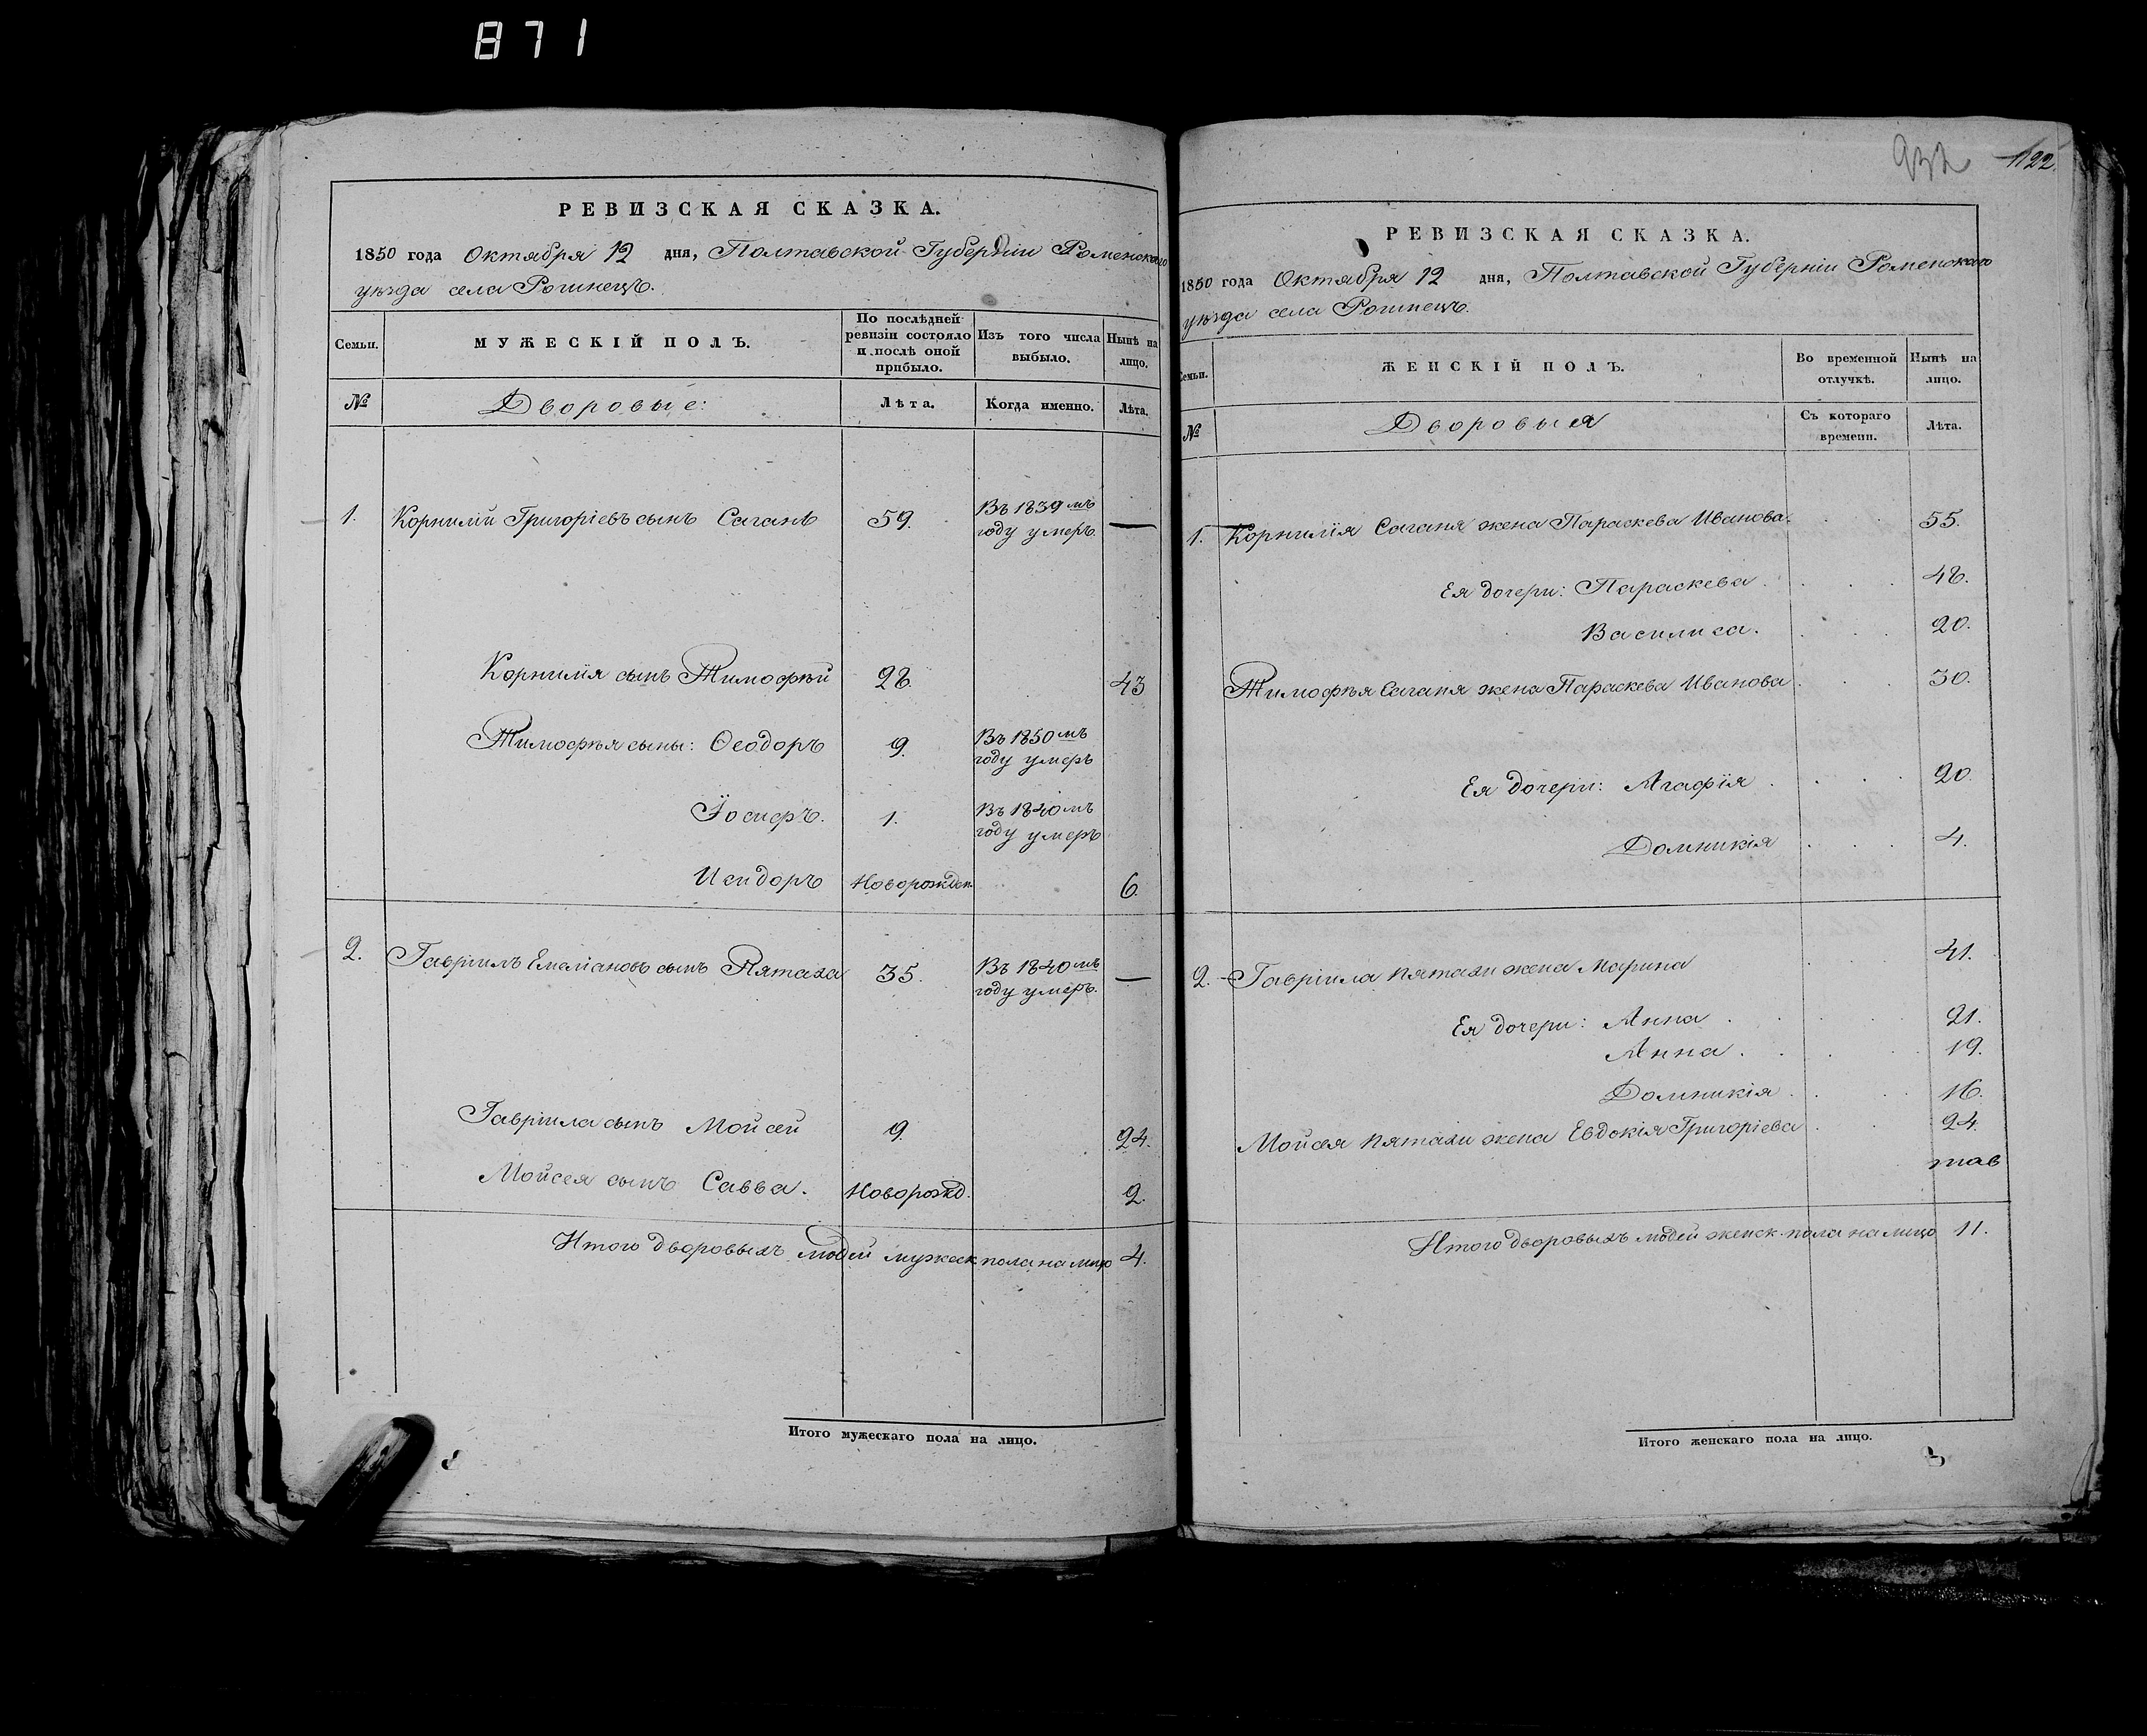 871
РЕВИЗСКАЯ СКАЗКА.
1850 года Октября 12 дня, Полтавской Губерніи Роменскаго
уѣзда села Рогинецъ.
Семьи.
МУЖЕСКІЙ ПОЛЪ.
По послѣдней ревизіи состояло и послѣ оной прибыло.
Изъ того числа выбыло.
Нынѣ на лицо.
№ Дворовые: Лѣта. Когда именно. Лѣта.
1. Корнилій Григоріевъ сынъ Саганъ 59. Въ 1839мъ году умеръ. —
Корнилія сынъ Тимофѣй 28. 43
Тимофѣя сыны: Ѳеодоръ 9. Въ 1850мъ году умеръ
Іосифъ. 1. Въ 1840мъ году умеръ
Исидоръ Новорожден. 6.
2. Гавріилъ Емеліановъ сынъ Пятаха 35. Въ 1840мъ году умеръ. —
Гавріила сынъ Мойсей 9. 24.
Мойсея сынъ Савва. Новорожд. 2.
Итого дворовыхъ людей мужеск. пола на лицо 4.
Итого мужескаго пола на лицо.
932 1122.
РЕВИЗСКАЯ СКАЗКА.
1850 года Октября 12 дня, Полтавской Губерніи Роменскаго
уѣзда села Рогинецъ.
Семьи.
ЖЕНСКІЙ ПОЛЪ.
Во временной отлучкѣ.
Нынѣ на лицо.
№ Дворовыя Съ котораго времени. Лѣта.
1. Корнилія Саганя жена Параскева Иванова. 55.
Ея дочери: Параскева. 48.
Василиса. 20.
Тимофѣя Саганя жена Параскева Иванова. 30.
Ея дочери: Агафія. 20.
Домникія. 4.
2. Гавріила Пятахи жена Марина 41.
Ея дочери: Анна. 21.
Анна. 19.
Домникія. 16.
Мойсея Пятахи жена Евдокія Григоріева 24.
Итого дворовыхъ людей женск. пола на лицо 11.
Итого женскаго пола на лицо.